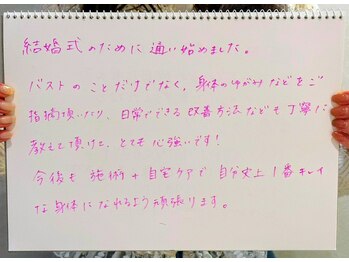 結婚式のために通い始めました。
バストのことだけでなく、身体のゆがみなどをご
指摘頂いたり、日常でできる改善方法なども丁寧に
教えて頂けて、とても心強いです!
今後も施術+自宅ケアで自分史上1番キレイ
な身体になれるよう頑張ります。